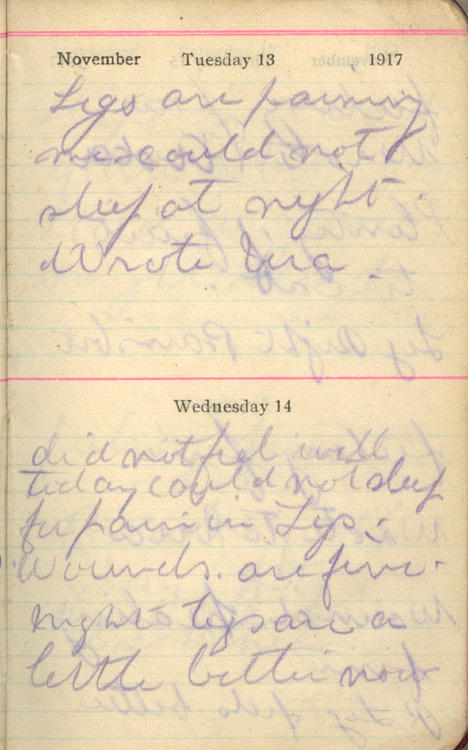 November Tuesday 13 1917
Legs are paining
me could not
sleep at night.
Wrote Vera.
Wednesday 14
did not feel well
today could not sleep
for pain in Legs.
Wounds. are fine.
night legs are a
little better now